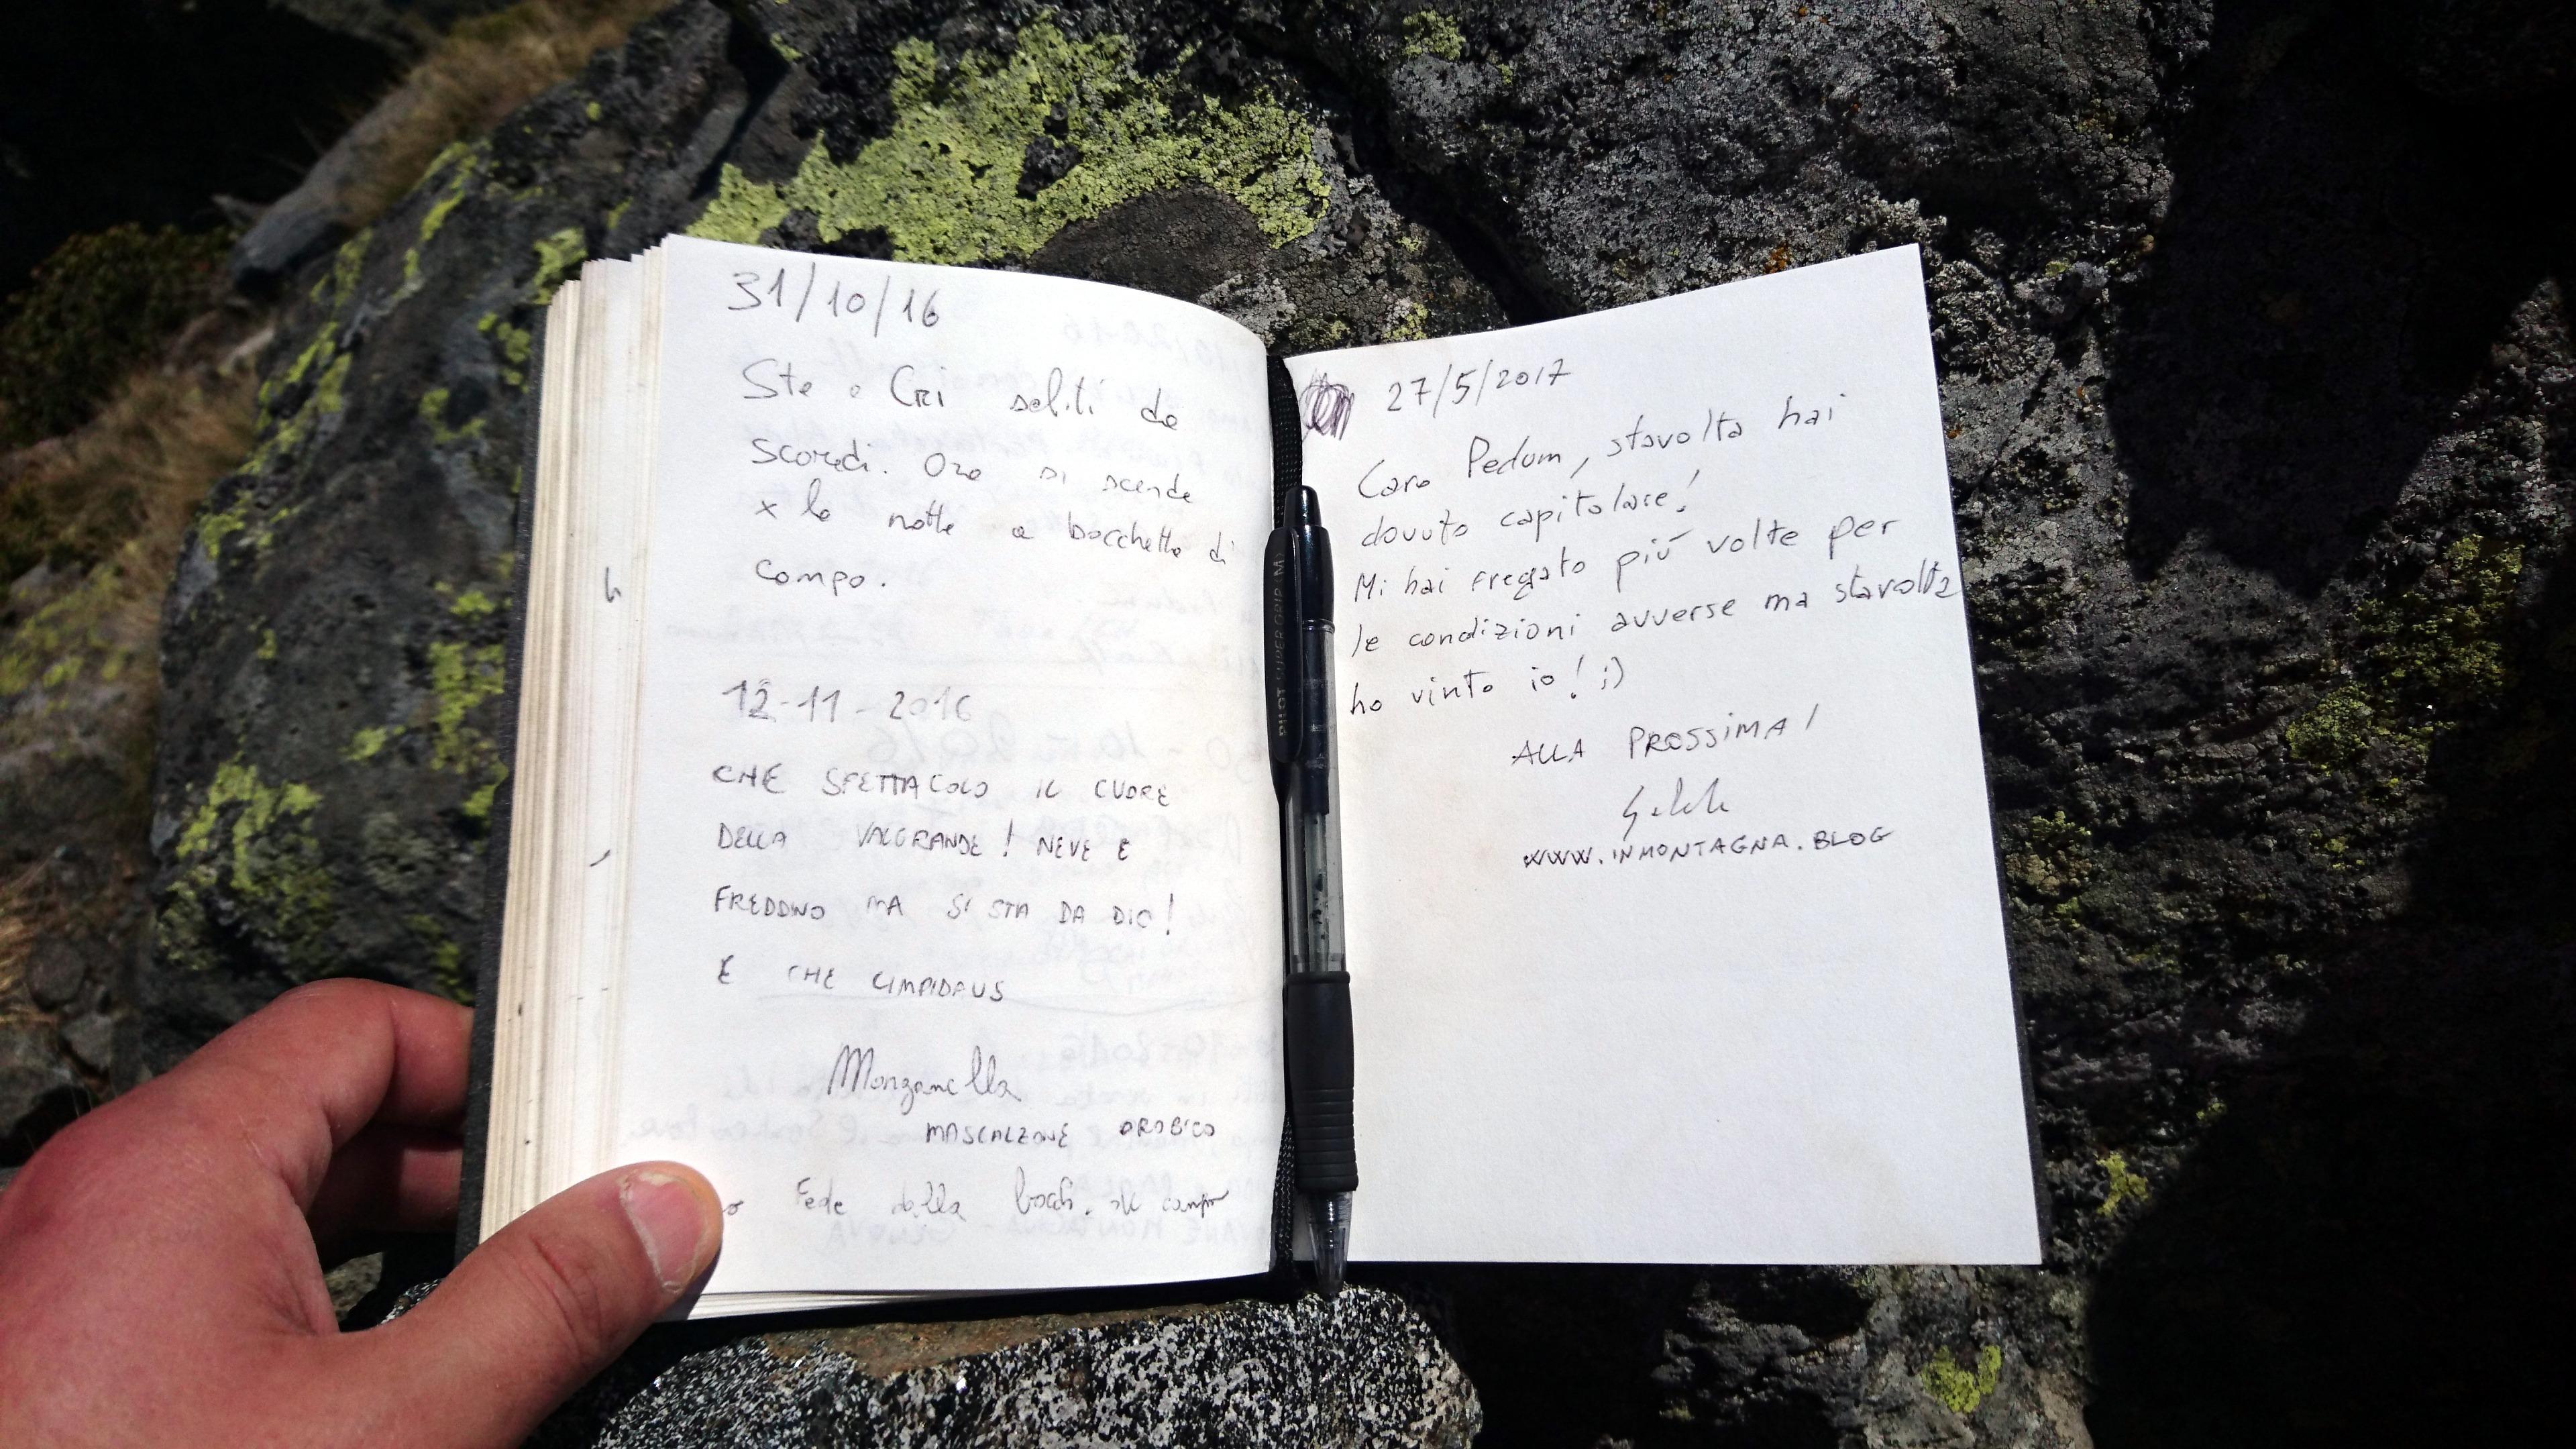 31/10/16
Ste e Cri saliti da
Scaredi. Ora si scende
x la notte a bocchetta di
campo.
12-11-2016
CHE SPETTACOLO IL CUORE
DELLA VALGRANDE! NEVE E
FREDDINO MA SI STA DA DIO!
E CHE
MASCALZONE OROBICO
Fede dalla bocch. di campo
27/5/2017
Caro Pedum, stavolta hai
dovuto capitolare!
Mi hai fregato più volte per
le condizioni avverse ma stavolta
ho vinto io! ;)
ALLA PROSSIMA!
WWW.INMONTAGNA.BLOG
PILOT SUPERGRIP (M)